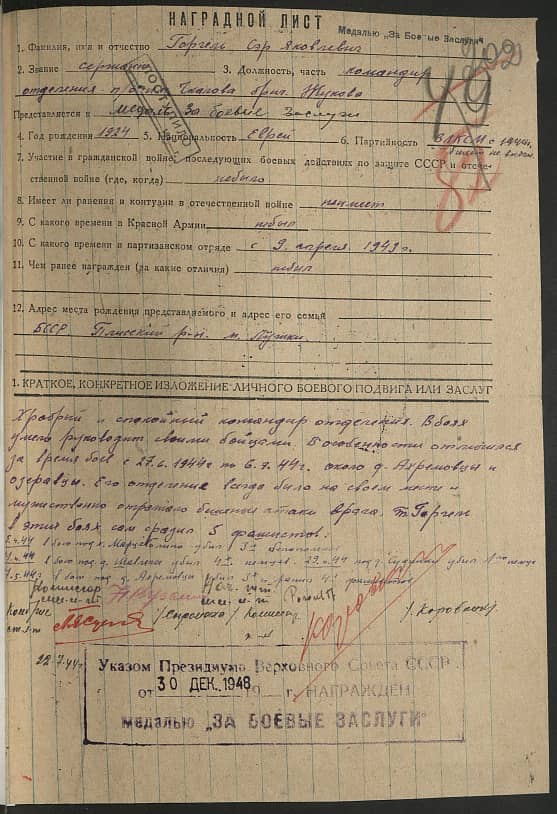 НАГРАДНОЙ ЛИСТ
Медалью „За Боевые Заслуги"
202
49
1. Фамилия, имя и отчество Горгель Сэр Яковлевич
2. Звание сержант 3. Должность, часть командир
отделения п/о Чкалова бриг. Жукова
Представляется к Медаль За боевые Заслуги
4. Год рождения 1924 5. Национальность еврей 6. Партийность ВЛКСМ с 1944г.
билет не выдан
7. Участие в гражданской войне, последующих боевых действиях по защите СССР и отече-
ственной войне (где, когда) небыло
8. Имеет ли ранения и контузии в отечественной войне неимеет
9. С какого времени в Красной Армии небыл
10. С какого времени в партизанском отряде с 9 апреля 1943г.
11. Чем ранее награжден (за какие отличия) небыл
12. Адрес места рождения представляемого и адрес его семьи
БССР Плисский р-н. м. Лужки
1. КРАТКОЕ, КОНКРЕТНОЕ ИЗЛОЖЕНИЕ ЛИЧНОГО БОЕВОГО ПОДВИГА ИЛИ ЗАСЛУГ
Храбрий и спокойный командир отделения. В боях
умело руководит своими бойцами. В особенности отличился
за время боев с 27.6.1944г. по 6.7.44г. около д. Ахремовцы и
озеравцы. Его отделение всегда било на своем месте и
мужественно отражало бешеные атаки врага. т. Горгель
в этих боях сам сразил 5 фашистов:
в бою под х. убил
в бою под д. убил 4х немцев. под убил
в бою под д. Ахремовцы убил и ранил фашистов
Комиссар Нач. шт.
22.7.44г.
Указом Президиума Верховного Совета СССР
от 30 ДЕК. 1948 19 г. НАГРАЖДЕН
медалью „ЗА БОЕВЫЕ ЗАСЛУГИ"